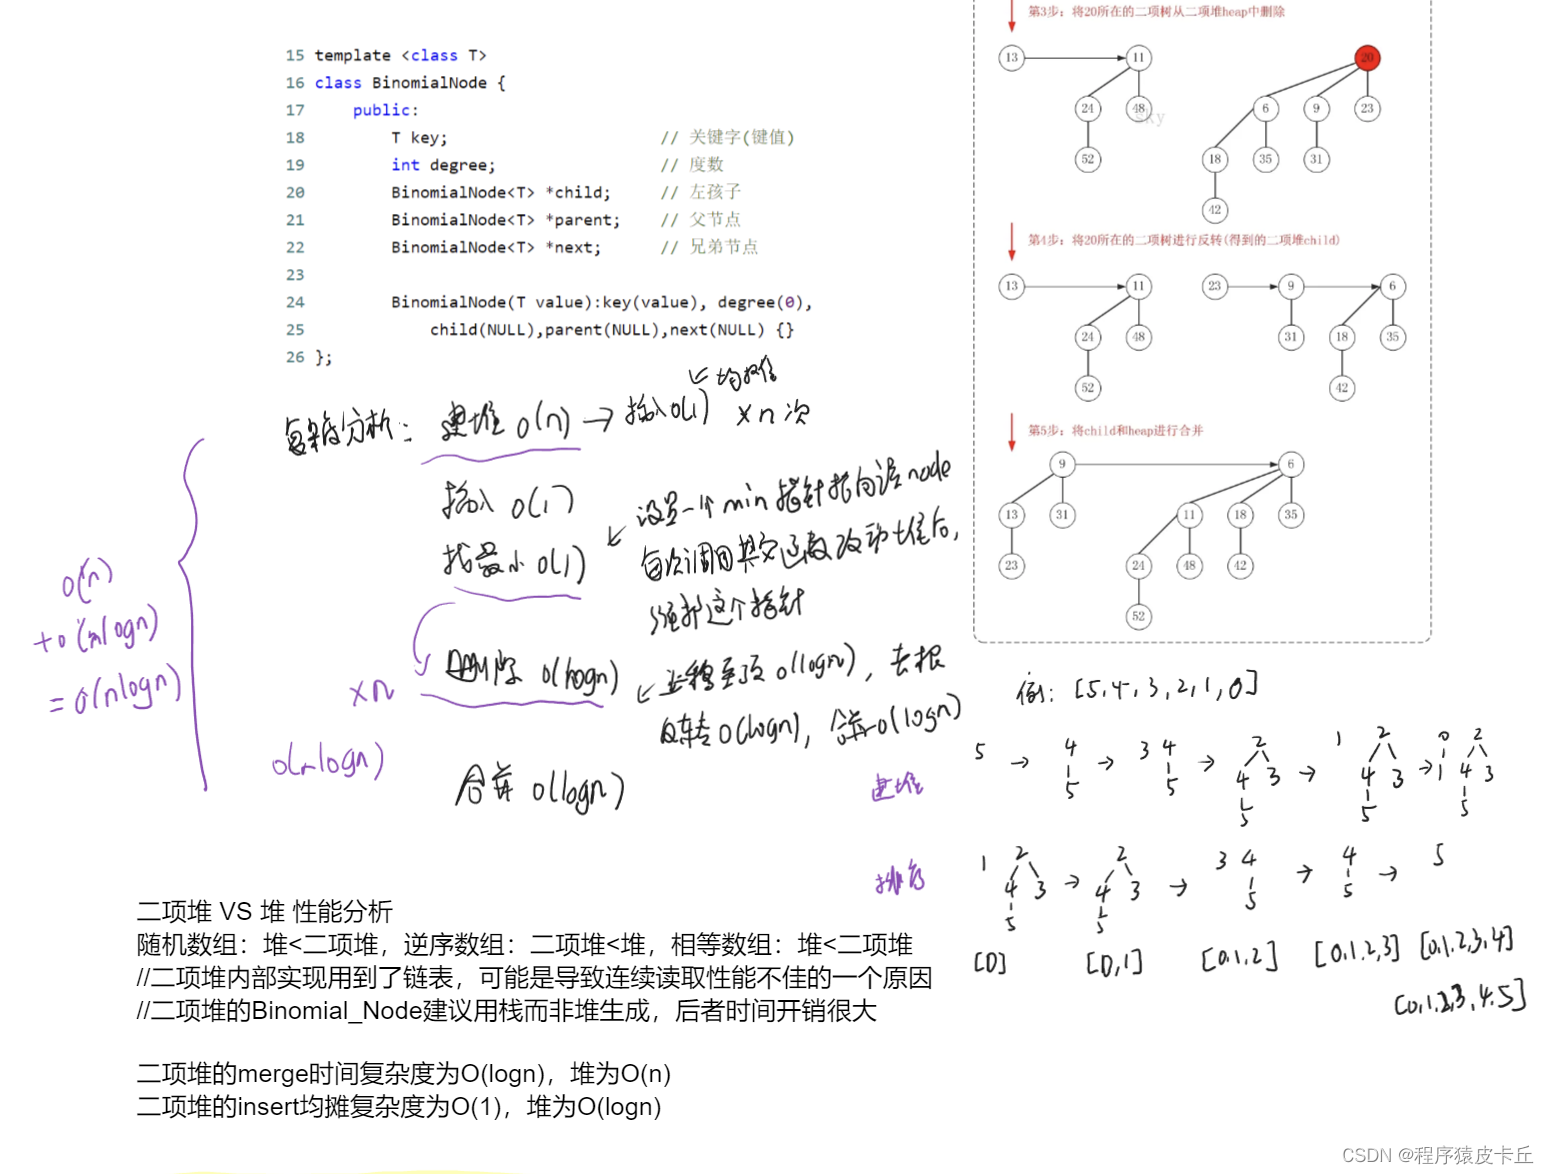 15 template <class T>
16 class BinomialNode {
17 public:
18 T key; // 关键字(键值)
19 int degree; // 度数
20 BinomialNode<T> *child; // 左孩子
21 BinomialNode<T> *parent; // 父节点
22 BinomialNode<T> *next; // 兄弟节点
23
24 BinomialNode(T value):key(value), degree(0),
25 child(NULL),parent(NULL),next(NULL) {}
26 };
复杂度分析: 建堆 O(n) → 插入O(1) ×n次
均摊
插入 O(1)
找最小 O(1)
设置一个min指针指向该node
每次调用其它函数改动堆后,
维护这个指针
删除 O(logn)
上移至顶 O(logn), 去根
反转 O(logn), 合并O(logn)
合并 O(logn)
×n
O(nlogn)
O(n)
+O(nlogn)
=O(nlogn)
第3步: 将20所在的二项树从二项堆heap中删除
13 11 20
24 48 6 9 23
sky
52 18 35 31
42
第4步: 将20所在的二项树进行反转(得到的二项堆child)
13 11 23 9 6
24 48 31 18 35
52 42
第5步: 将child和heap进行合并
9 6
13 31 11 18 35
23 24 48 42
52
例: [5,4,3,2,1,0]
建堆
5 → 4 → 3 4 → 2 → 1 2 → 0 2
5 5 4 3 4 3 1 4 3
5 5 5
排序
1 2 → 2 → 3 4 → 4 → 5
4 3 4 3 5 5
5 5
[0] [0,1] [0,1,2] [0,1,2,3] [0,1,2,3,4]
[0,1,2,3,4,5]
二项堆 VS 堆 性能分析
随机数组：堆<二项堆，逆序数组：二项堆<堆，相等数组：堆<二项堆
//二项堆内部实现用到了链表，可能是导致连续读取性能不佳的一个原因
//二项堆的Binomial_Node建议用栈而非堆生成，后者时间开销很大
二项堆的merge时间复杂度为O(logn)，堆为O(n)
二项堆的insert均摊复杂度为O(1)，堆为O(logn)
CSDN @程序猿皮卡丘